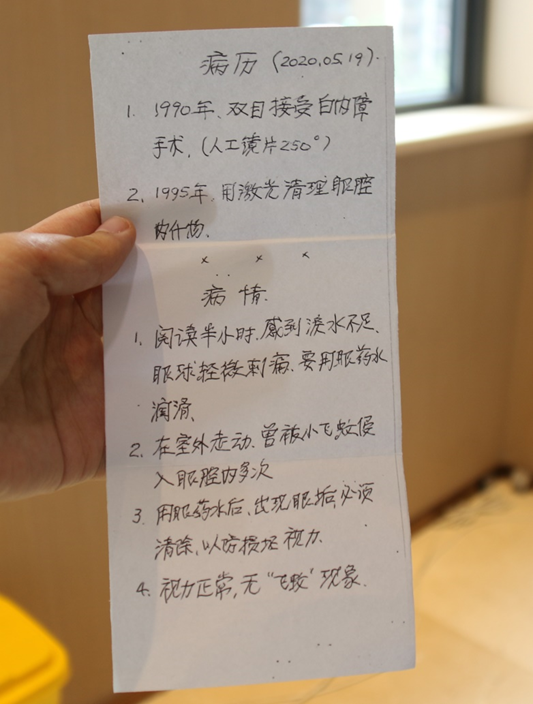 病历（2020.05.19）.
1. 1990年、双目接受白内障
手术.（人工镜片250°）
2. 1995年,用激光清理眼腔
的什物、
× × ×
病情.
1. 阅读半小时、感到淚水不足、
眼球轻微刺痛、要用眼药水
润滑、
2. 在室外走动、曾被小飞蚊侵
入眼腔内多次
3. 用眼药水后、出现眼垢,必须
清除,以防损坏视力.
4. 视力正常,无“飞蚊”现象.